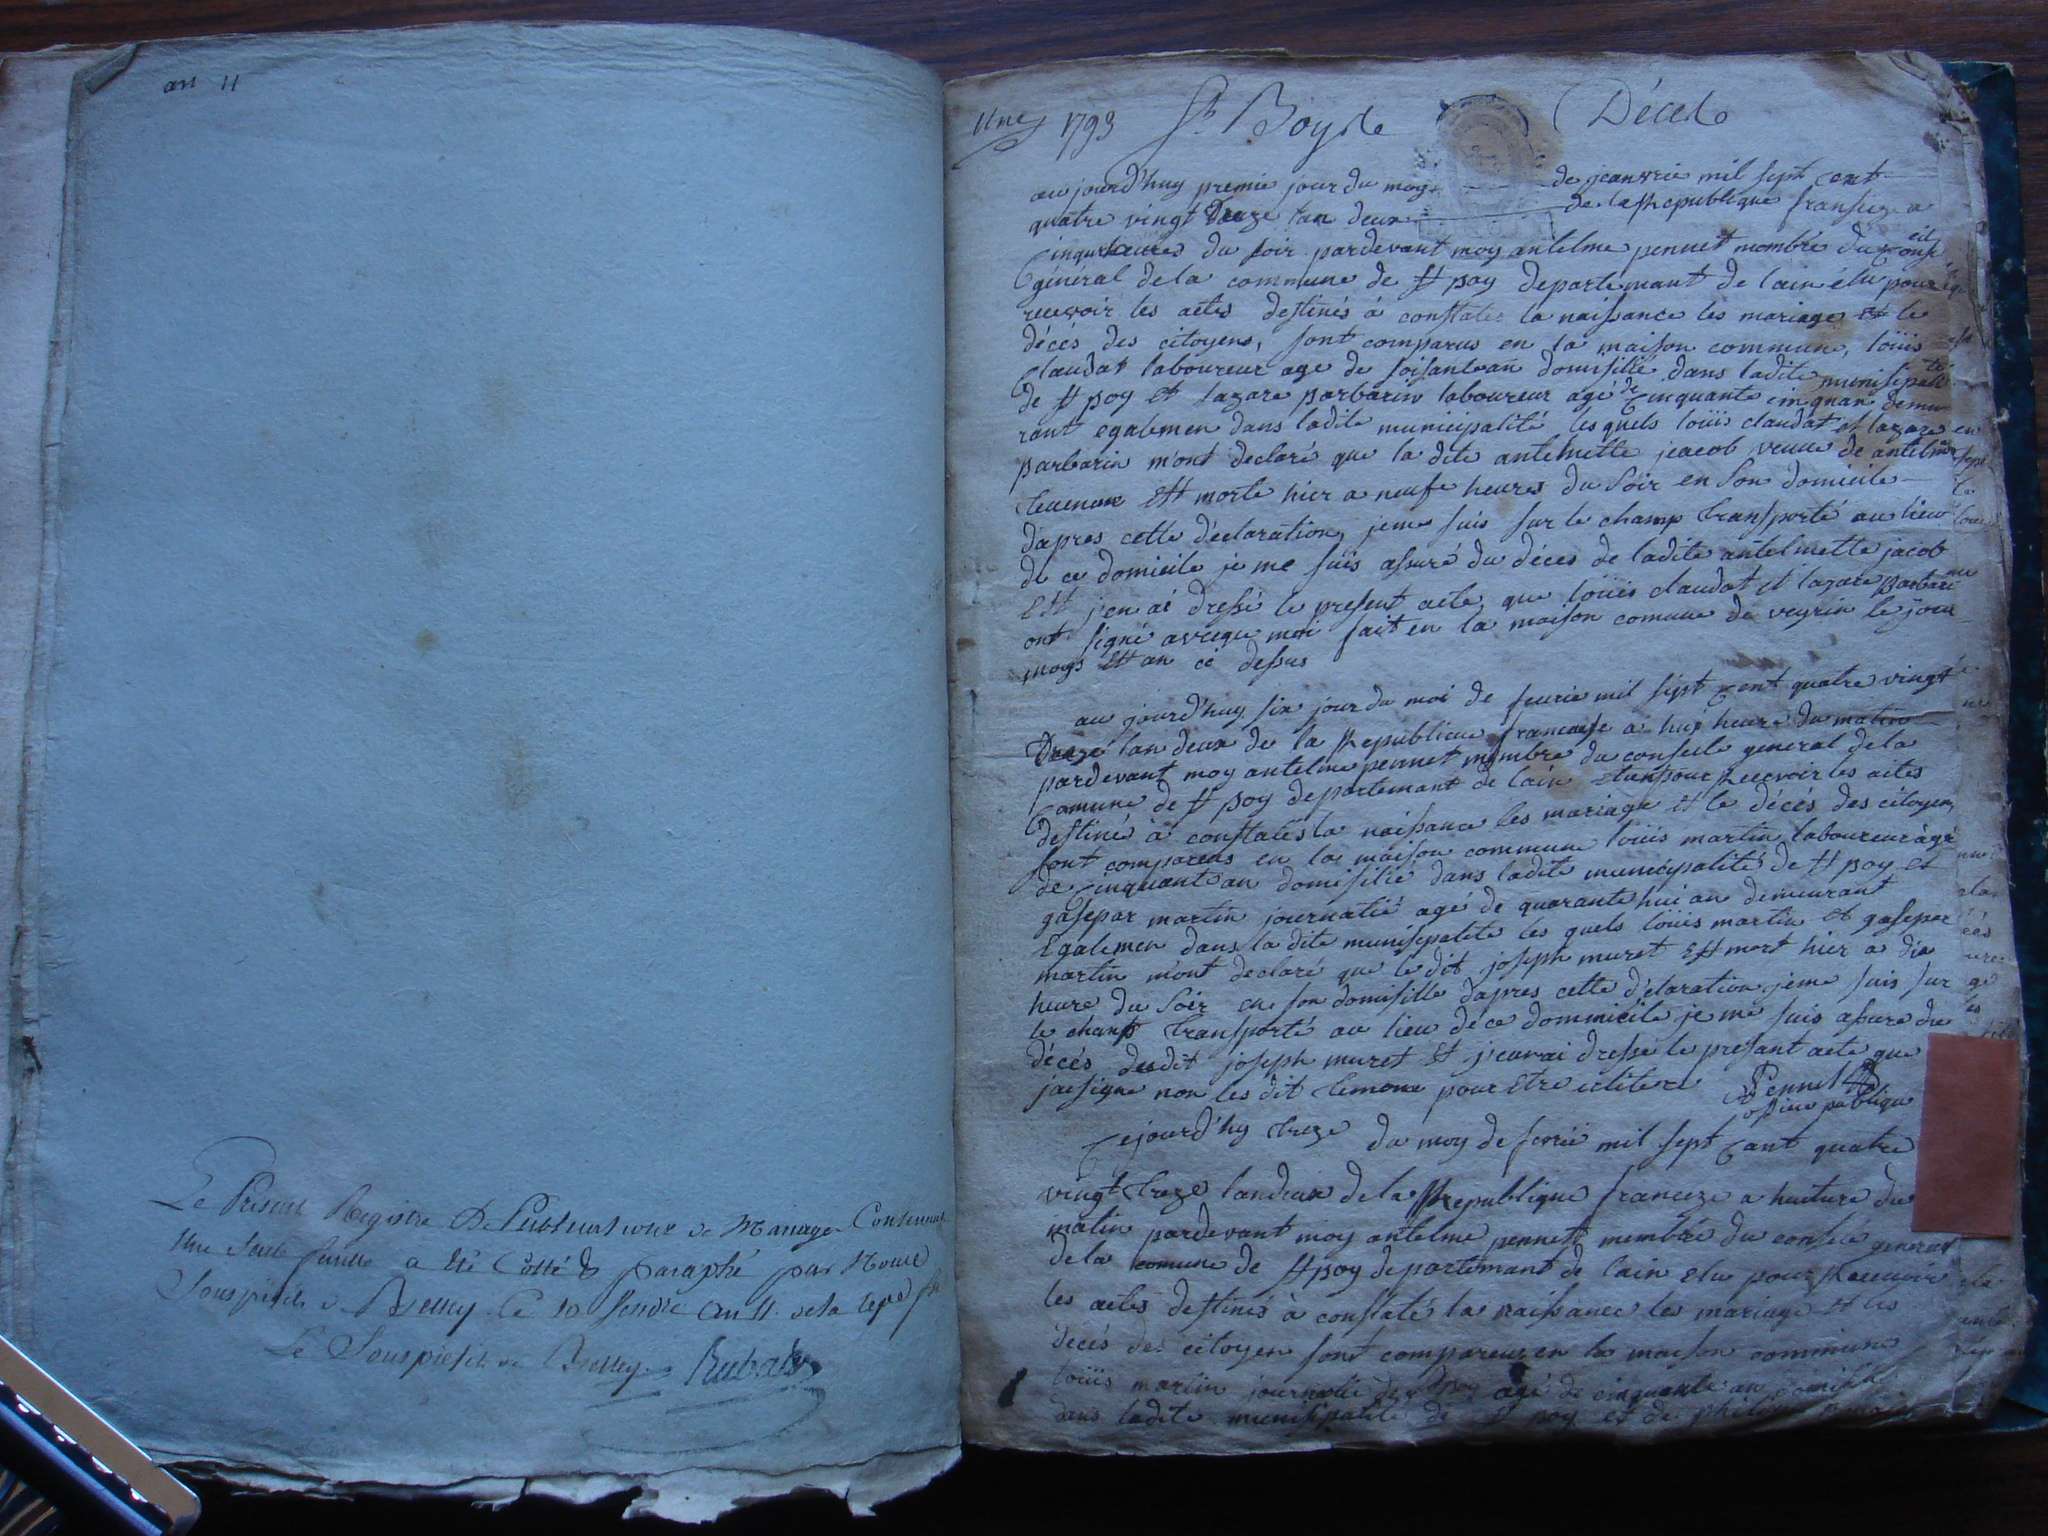 an 11
Le Présent Registre De Publications de Mariage Contenant
Une seule feuille a été Cotté & paraphé par Nous
Souspréfet de Belley le 10 an 11 de la rep. fse
Le Souspréfet de Belley
1793 St Boys Décès
au jourd'huy premie jour du moy de jeanvrie mil sept cent
quatre vingt treze lan deux de la Republique franseze a
cinq heures du soir pardevant moy antelme pennet membre du conseil
général de la commune de st boy departemant de lain élu pour
recevoir les actes destinés à constates la naissance les mariage et le
décés des citoyens, sont comparus en la maison commune, loüis
claudat laboureur age de soisante an domisilié dans ladite munisipalité
de st boy et lazare parbarin laboureur agé de cinquante cinq an demu
rant egalemen dans ladite municipalité lesquels loüis claudat et lazare
parbarin m'ont declaré que la dite antelmette jeacob veuve de antelme
teuenon est morte hier a neufe heures du soir en son domicile
dapres cette déclaration, jeme suis sur le champ transporté au lieu
de ce domicile je me suis assuré du déces de ladite antelmette jacob
Et j'en ai dressé le present acte que loüis claudat et lazare Barbarin
ont signé avecque moi fait en la maison comune de veyrin le jour
moys et an ci dessus
au jourd'huy six jour du moi de feurie mil sept cent quatre vingt
treze lan deux de la Republicue francaise a huit heure du matin
pardevant moy antelme pennet membre du conseile general de la
comune de st boy departemant de lain elu pour Recevoir les actes
destinés à constates la naissance les mariage et le décés des citoyen,
sont compareus en la maison commune loüis martin laboureur àgé
de cinquante an domisilié dans ladite municipalité de st boy et
gasepar martin journalié agé de quarante hui an demeurant
Egalemen dans la dite munisepalite les quels loüis martin et gasepar
martin m'ont declaré que le dit joseph muret est mort hier a dix
heure du soir en son domisille dapres cette déclaration jeme suis sur
le champ transporté au lieu de ce dommicile je me suis assure du
décés dudit joseph muret et j'en ai dressé le presant acte que
jai signe non les dit temoins pour etre ilitere Pennet
officie publique
Cejourd'hy treze du moy de fevrié mil sept cant quatre
vingt treze lan deux de la Republique franceze a huiture du
matin pardevant moy antelme pennet membre du conselé general
de la comune de st boy departemant de lain elu pour Recevoir
les actes destinés à constaté la naissance les mariage et les
decés des citoyen sont compareus en la maison commune
loüis martin journalié de st boy agé de cinquante an domisilié
dans ladite munisipalité de st boy et de